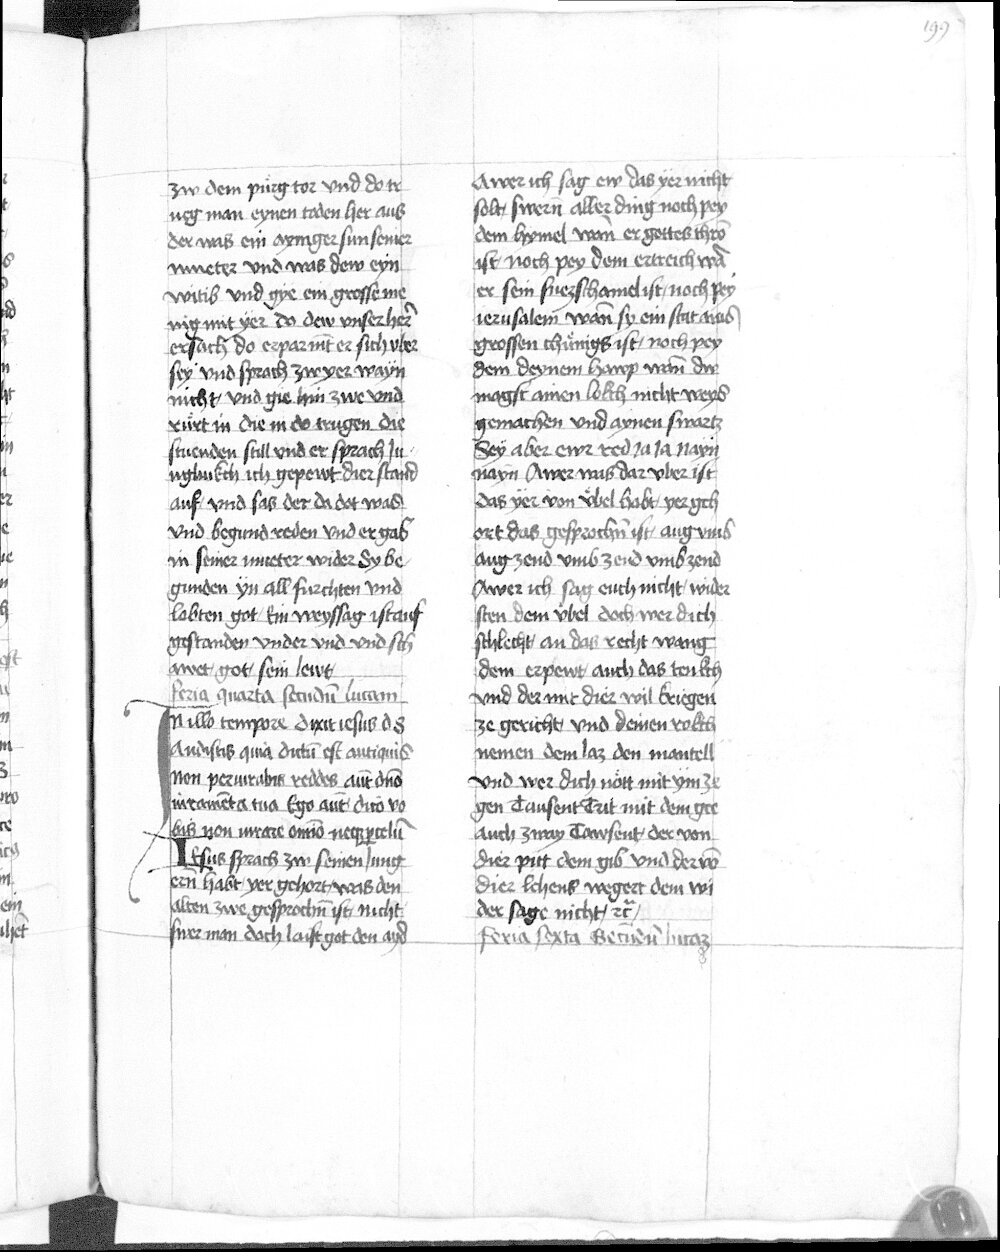 199
zw dem pürg tor vnd do tr
ueg man eynen toden her aus
der was ein ayniger sun seiner
mueter vnd was dew eyn
witib vnd gye ein grosse me
nig mit yer do dew vnser her
ersach do erparmt er sich vber
sey vnd sprach zw yer wayn
nicht vnd gie hin zwe vnd
rürt in die in do trugen die
stuenden still vnd er sprach Ju
ngling ich gepewt dier stand
auf vnd sas der da dot was
vnd begund reden vnd er gab
in seiner mueter wider Sy be
gunden yn all furchten vnd
lobten got Ein weyssag ist auf
gestanden vnder vnd vnd sch
awet got sein lewt
feria quarta secundū lucam
In illo tempore dixit iesus ds
Audistis quia dictū est antiquis
non periurabis reddes aūt dn̄o
iuramēta tua Ego aūt dico vo
bis non iurare om̄io neq; p celū
Iesus sprach zw seinen Jung
ern habt yer gehort was den
alten zwe gesprochn̄ ist nicht
swer man doch laist got den ayd
Awer ich sag ew das yer nicht
solt swern̄ aller ding noch pey
dem hymel wan̄ er gottes thrō
ist noch pey dem ertreich wā
er sein fuezschamel ist noch pey
ierusalem wan̄ sy ein stat ains
grossen chünigs ist noch pey
dem deynem hawp wan̄ dw
magst ainen lokch nicht weys
gemachen vnd aynen swartz
Sey aber ewr red Ja Ja Nayn
nayn Awer was dar vber ist
das yer von übel habt yer geh
ort das gesprochn̄ ist aug vmb
aug zend vmb zend vmb zend
Awer ich sag euch nicht wider
sten dem übel doch wer dich
schlecht an das recht wang
dem erpewt auch das tenkch
vnd der mit dier wil kriegen
ze gericht vnd deinen rokch
nemen dem laz den mantell
vnd wer dich nött mit ym ze
gen Tausent Trit mit dem gee
auch zway Tawsent der von
dier pitt dem gib vnd der vō
dier lehens wegert dem wi
der sage nicht / rc̄ /
feria sexta Secūdū lucaz